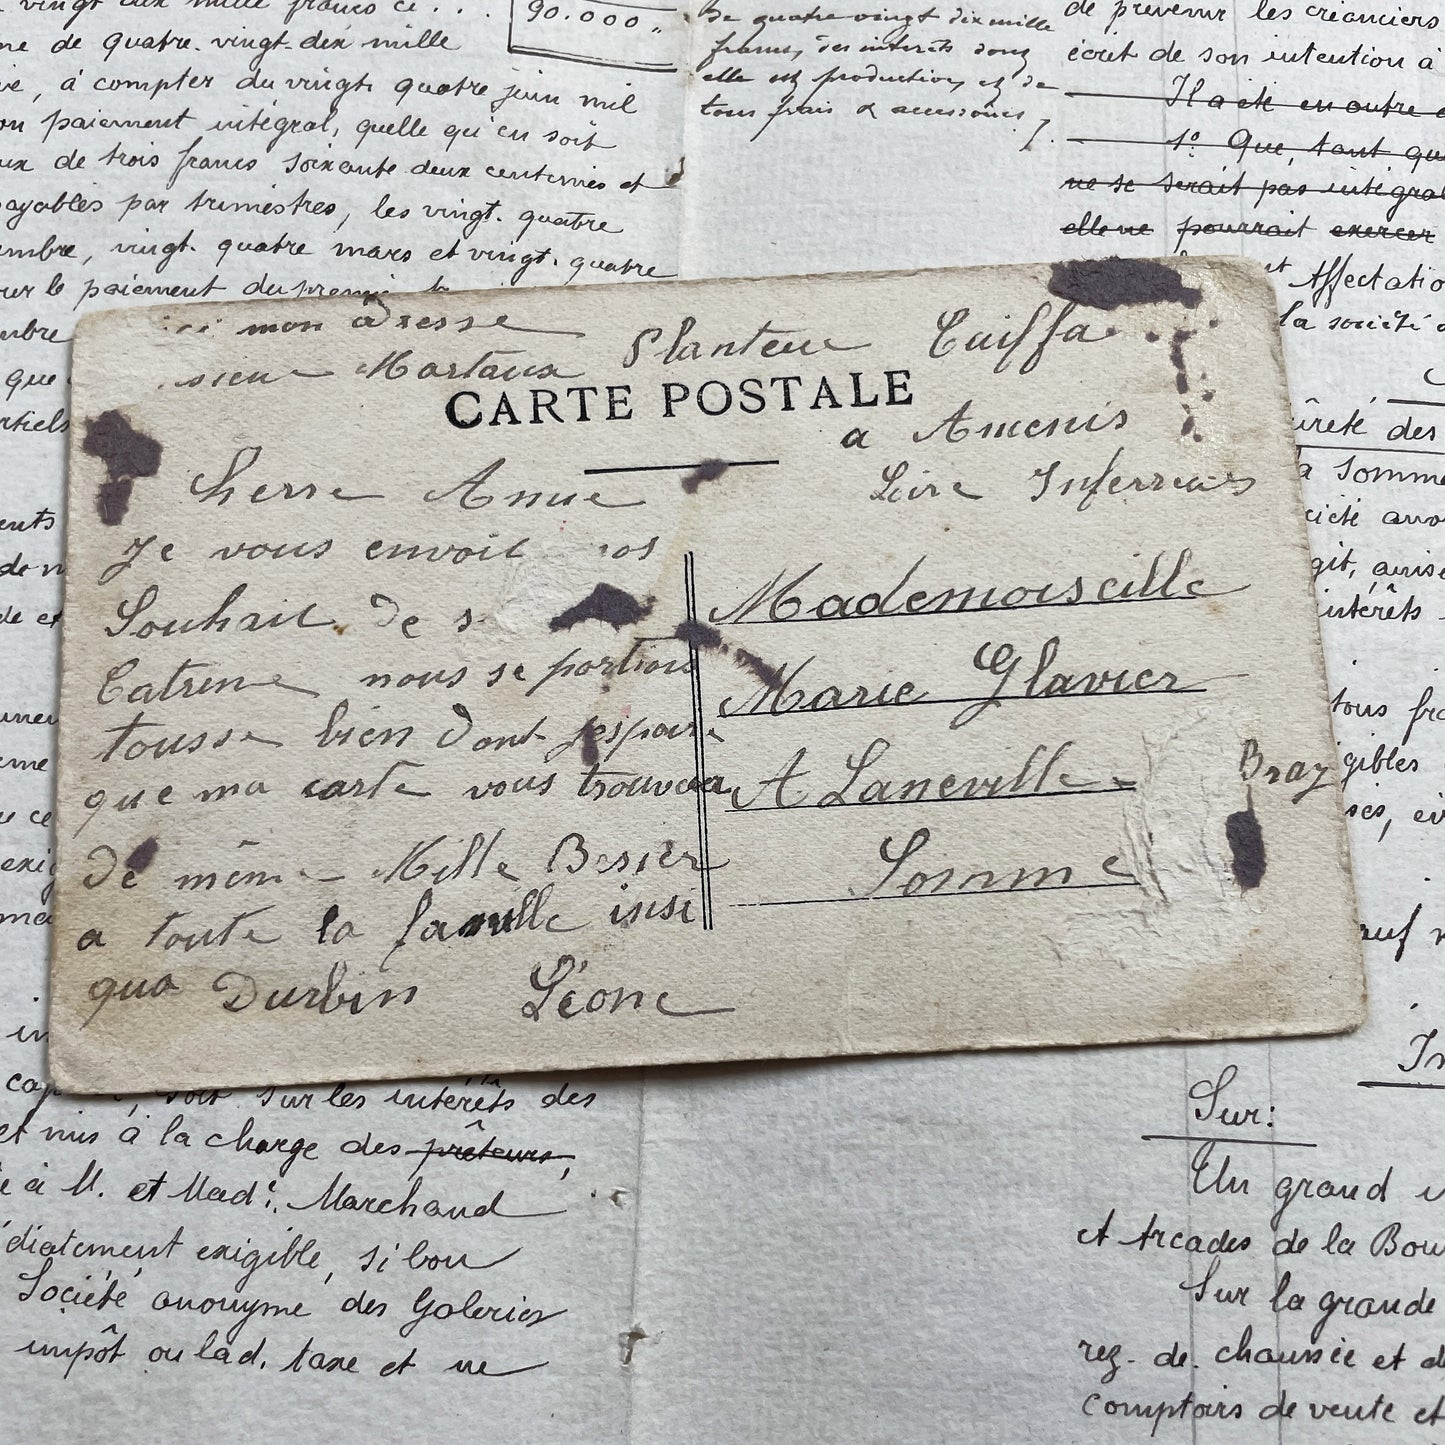 vingt dix mille francs ce...
90.000
de quatre-vingt-dix mille
, à compter du vingt quatre juin mil
paiement intégral, quelle qu'en soit
de trois francs soixante deux centimes et
payables par trimestres, les vingt-quatre
vingt-quatre mars et vingt-quatre
le paiement du
que
De quatre vingt dix mille
francs, des intérêts dont
elle est production, et de
tous frais & accessoires
de prévenir les créanciers
écrit de son intention à
Il a été en outre
1° Que, tant qu
ne se serait pas intégral
elle ne pourrait exercer
Affectatio
la société
ûreté des
la somme
ciété ano
git, avise
intérêts
tous fra
mon adresse
Martaux Planteur Caiffa
CARTE POSTALE
a Amenis
Loire Inferreius
Cherre Annie
Je vous envoit
Souhait de s
Catrine nous se portions
tousse bien dont jespaire
que ma carte vous trouvera
de même Mille Besier
a toute la famille insi
qua Durbin Léone
Mademoiseille
Marie Glavier
A Laneville Bray
Somme
soit sur les intérêts des
et mis à la charge des prêteurs,
à M. et Mad^e. Marchand
édiatement exigible, si bon
Société anonyme des Galeries
impôt ou lad. taxe et ne
Sur:
Un grand
et Arcades de la Bou
Sur la grande
rez-de-chaussée et d
comptoirs de vente et